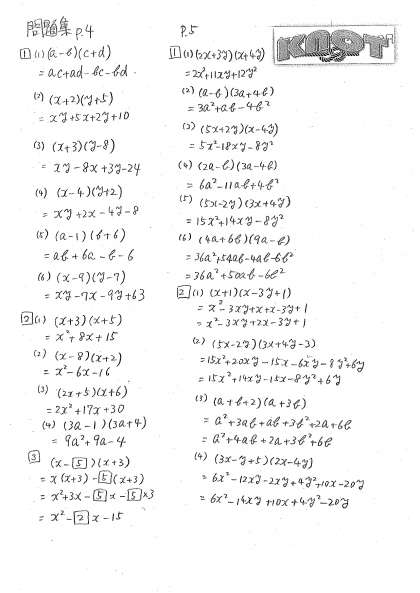 問題集 p.4
1 (1) (a-b)(c+d)
= ac+ad-bc-bd
(2) (x+2)(y+5)
= xy+5x+2y+10
(3) (x+3)(y-8)
= xy-8x+3y-24
(4) (x-4)(y+2)
= xy+2x-4y-8
(5) (a-1)(b+6)
= ab+6a-b-6
(6) (x-9)(y-7)
= xy-7x-9y+63
2 (1) (x+3)(x+5)
= x²+8x+15
(2) (x-8)(x+2)
= x²-6x-16
(3) (2x+5)(x+6)
= 2x²+17x+30
(4) (3a-1)(3a+4)
= 9a²+9a-4
3 (x-5)(x+3)
= x(x+3)-5(x+3)
= x²+3x-5x-5×3
= x²-2x-15
P.5
KNOT
1 (1) (2x+3y)(x+4y)
= 2x²+11xy+12y²
(2) (a-b)(3a+4b)
= 3a²+ab-4b²
(3) (5x+2y)(x-4y)
= 5x²-18xy-8y²
(4) (2a-b)(3a-4b)
= 6a²-11ab+4b²
(5) (5x-2y)(3x+4y)
= 15x²+14xy-8y²
(6) (4a+6b)(9a-b)
= 36a²+54ab-4ab-6b²
= 36a²+50ab-6b²
2 (1) (x+1)(x-3y+1)
= x²-3xy+x+x-3y+1
= x²-3xy+2x-3y+1
(2) (5x-2y)(3x+4y-3)
= 15x²+20xy-15x-6xy-8y²+6y
= 15x²+14xy-15x-8y²+6y
(3) (a+b+2)(a+3b)
= a²+3ab+ab+3b²+2a+6b
= a²+4ab+2a+3b²+6b
(4) (3x-y+5)(2x-4y)
= 6x²-12xy-2xy+4y²+10x-20y
= 6x²-14xy+10x+4y²-20y